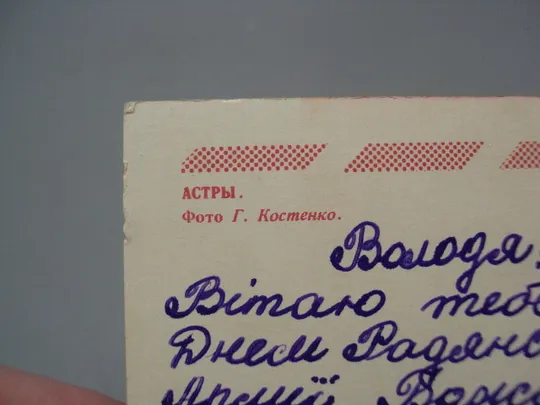 АСТРЫ.
Фото Г. Костенко.
Володя!
Вітаю тебе
Днем Радянс
Армії Бажа